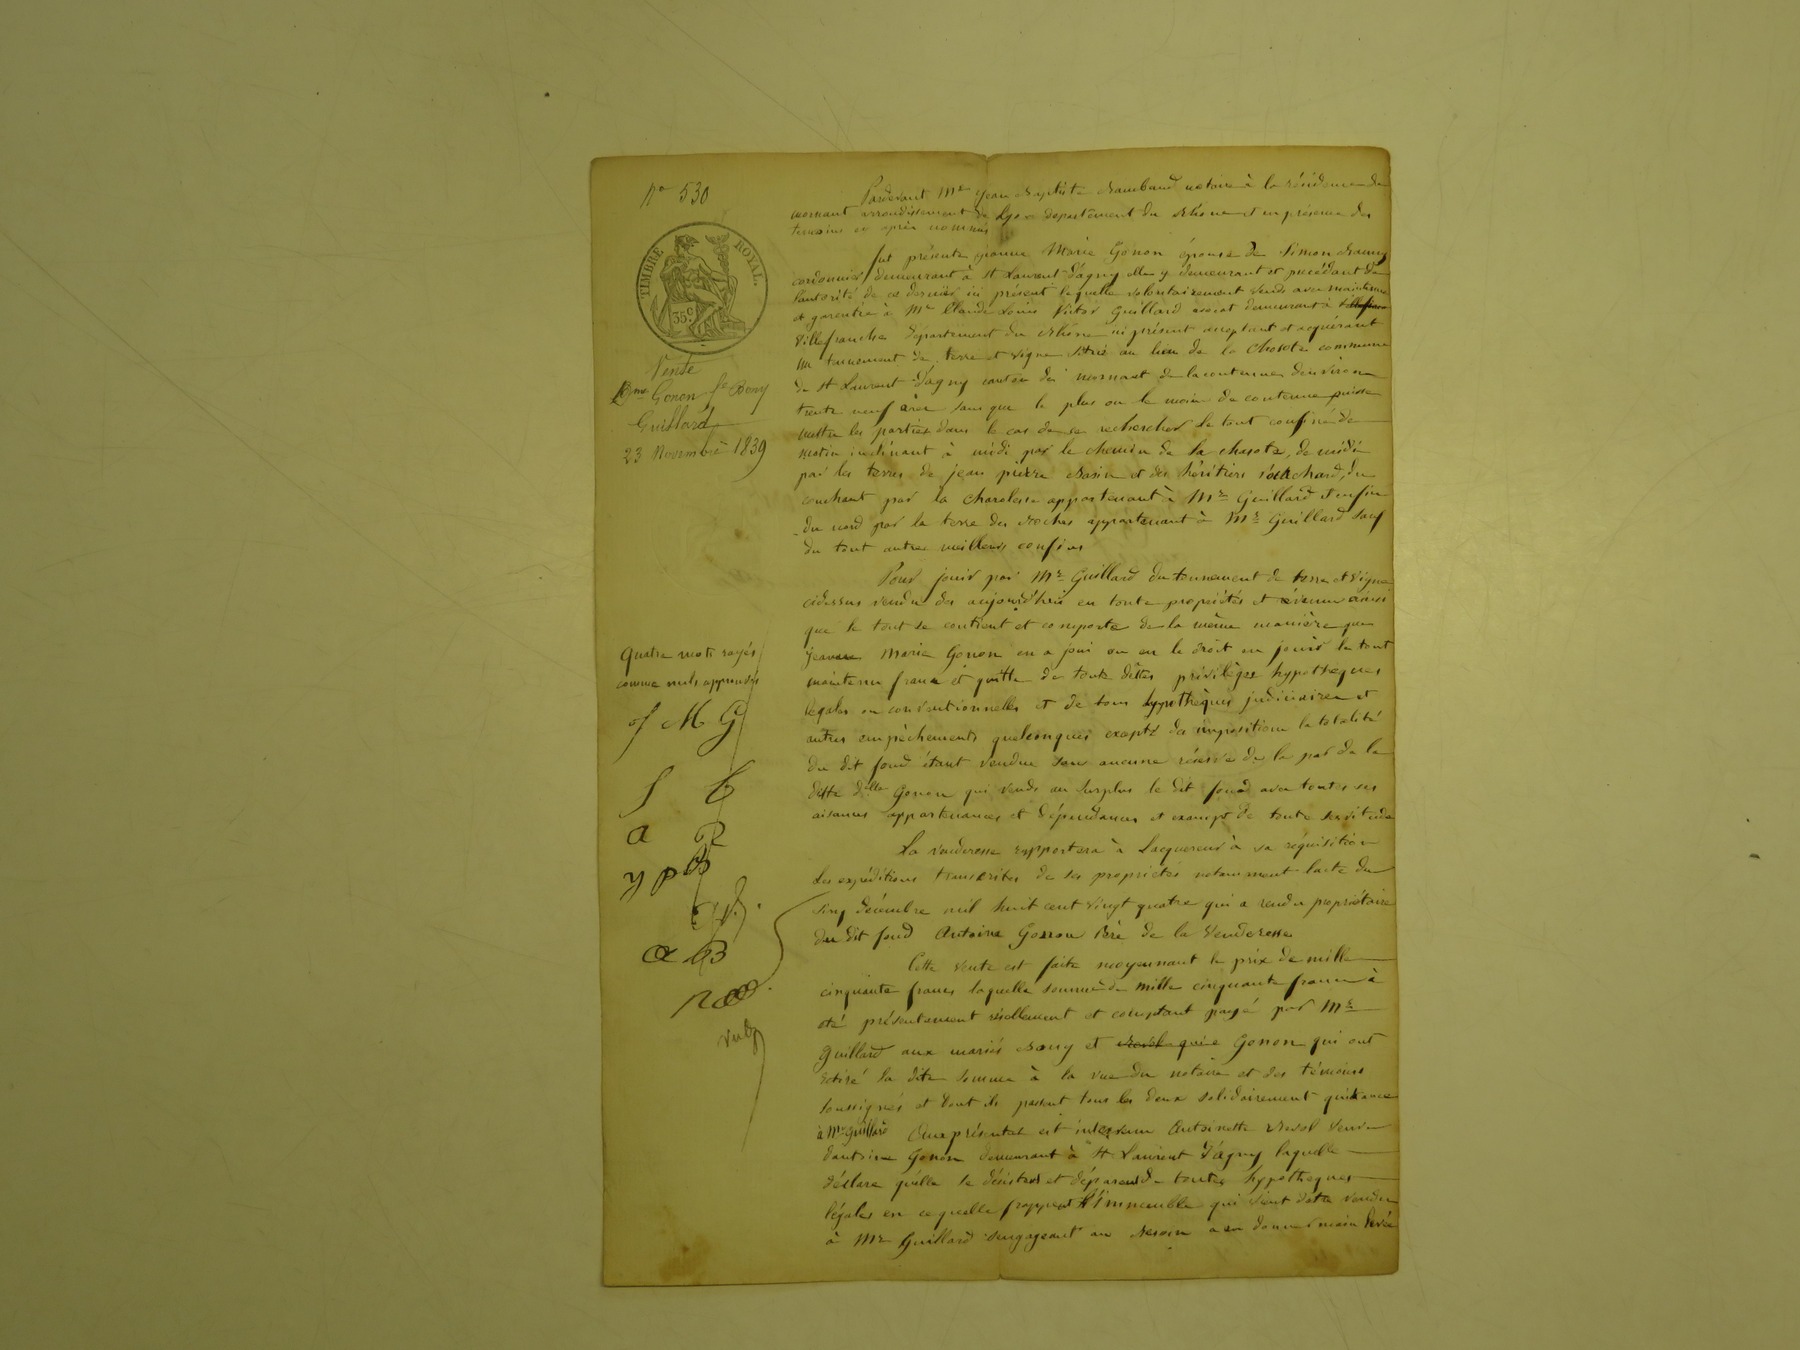 no 530
TIMBRE ROYAL.
35 c.
Vente
Dme Gonon fe Bouy
Guillard
23 Novembre 1839
Pardevant Me Jean Baptiste Rambaud notaire à la résidence de
mornant arrondissement de Lyon département du Rhône et en présence des
temoins cy après nommés
fut présente jeanne Marie Gonon épouse de Simon Bouy
cordonnier demeurant à St Laurent d'agny elle y demeurant et procédant de
lautorité de ce dernier ici présent laquelle volontairement vend avec maintenue
et garentie à Mr Claude Louis Victor Guillard avocat demeurant à
Villefranche département du Rhône ici présent acceptant et acquérant
un tennement de terre et vigne situé au lieu de la Chasote commune
de St Laurent d'agny canton de mornant de la contenue denviron
trente neuf ares sans que le plus ou le moins de contenue puisse
mettre les parties dans le cas de se rechercher le tout confiné de
matin inclinant à midi par le chemin de la chasote, de midi
par les terres de jean pierre et des héritiers, du
couchant par la appartenant à Mr Guillard et enfin
du nord par la terre des roches appartenant à Mr Guillard sauf
du tout autres meilleurs confins
Pour jouir par Mr Guillard du tennement de terre et vigne
cidessus vendu des aujourd'hui en toute propriétés et revenu ainsi
que le tout se contient et comporte de la même manière que
jeanne Marie Gonon en a joui ou eu le droit en jouir le tout
maintenu franc et quitte de toute dettes privilèges hypothèques
légales ou conventionnelles et de tous hypothèques judiciaires et
autres empêchements quelconques excepté des impositions la totalité
du dit fond étant vendue sans aucune réserve de la par de la
ditte dlle Gonon qui vend au surplus le dit fond avec toutes ses
aisances appartenances et dépendances et exempt de toute servitude
La venderesse rapportera à lacquereur à sa réquisition
les expéditions transcrites de ses propriétés notamment lacte du
cinq décembre mil huit cent vingt quatre qui a rendu propriétaire
du dit fond Antoine Gonon Père de la Venderesse
Cette vente est faite moyennant le prix de mille
cinquante francs laquelle somme de mille cinquante francs à
été présentement réellement et comptant payé par Mr
Guillard aux mariés Bouy et Gonon qui ont
retiré la dite somme à la vue du notaire et des témoins
soussignés et dont ils passent tous les deux solidairement quittance
à Mr Guillard Aux présentes est intervenu Antoinette Revol veuve
dantoine Gonon demeurant à St Laurent d'agny laquelle
déclare quelle se désiste et départ de toutes hypothèques
légales en ce quelle frappent l'immeuble qui vient detre vendu
à Mr Guillard sengageant au besoin a en donner main levée
Quatre mots rayés
comme nuls approuvés
of M G
a R
y p B
a B